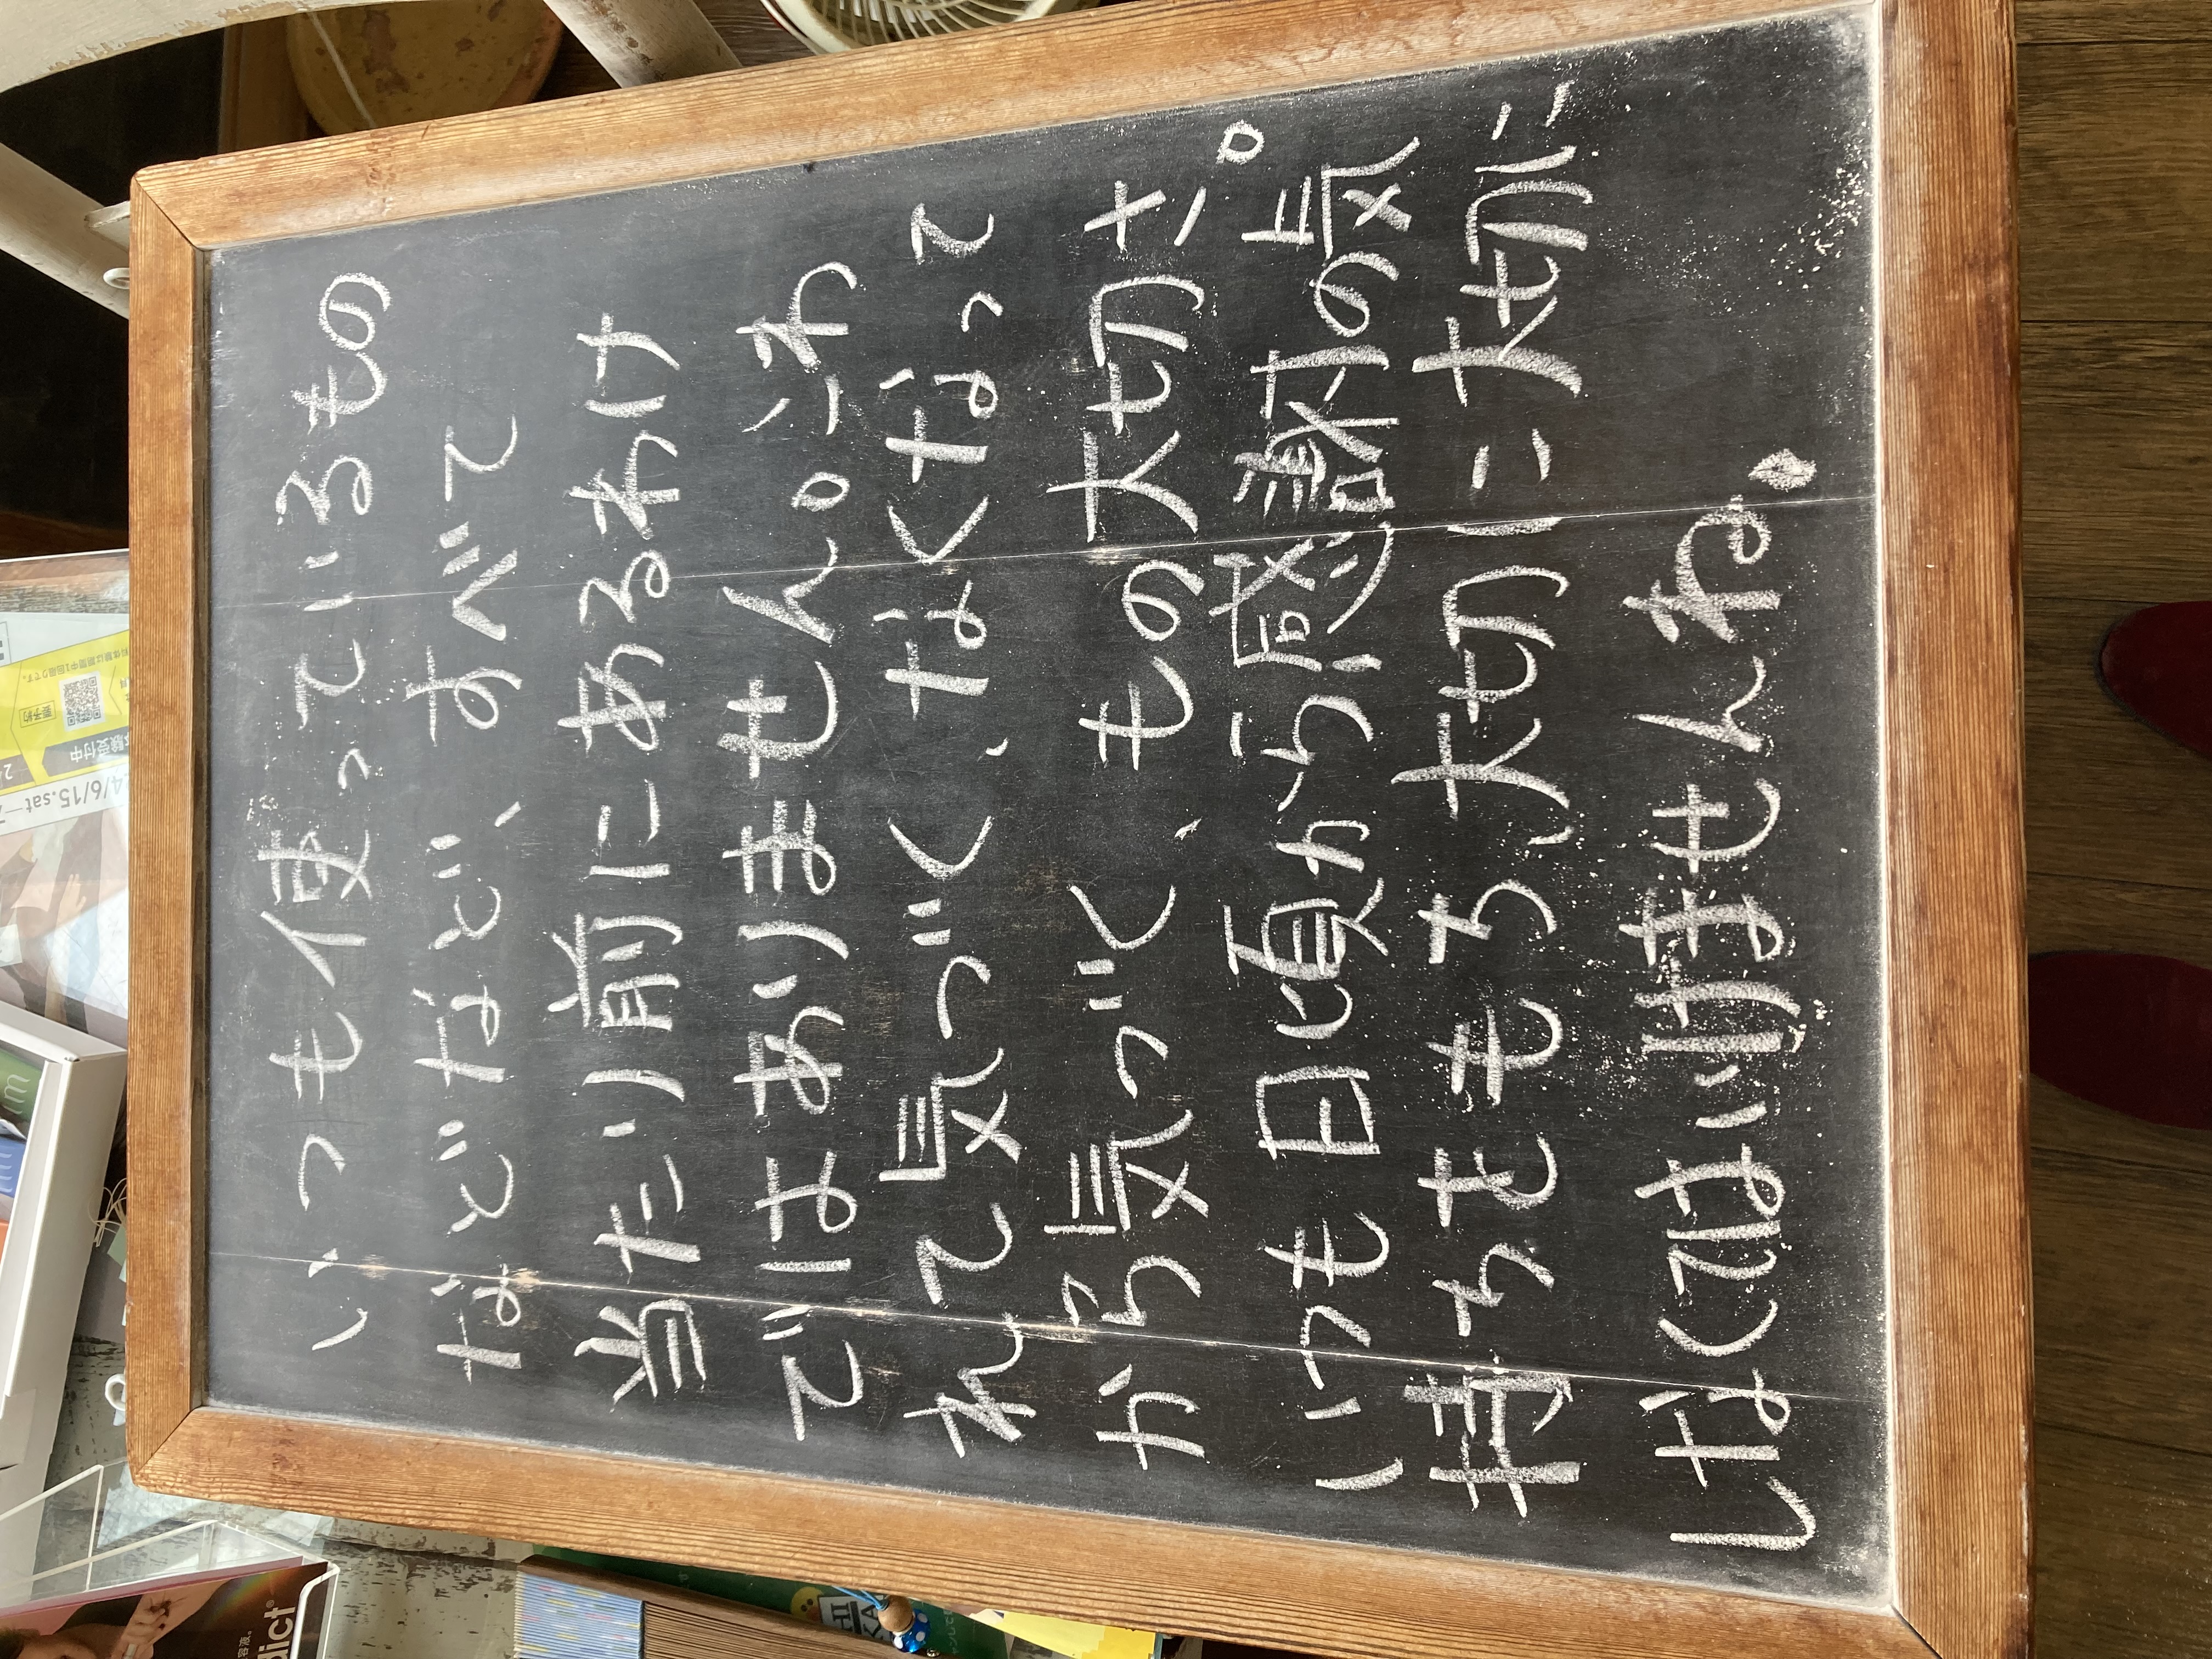 いつも使っているもの
などなど、すべて
当たり前にあるわけ
ではありません。こわ
れて気づく、なくなって
から気づく、もの大切さ。
いつも日頃から感謝の気
持ちをもち大切に大切に
しなくてはいけませんね。
4/6/15.sat
験受付中
要予約
dict